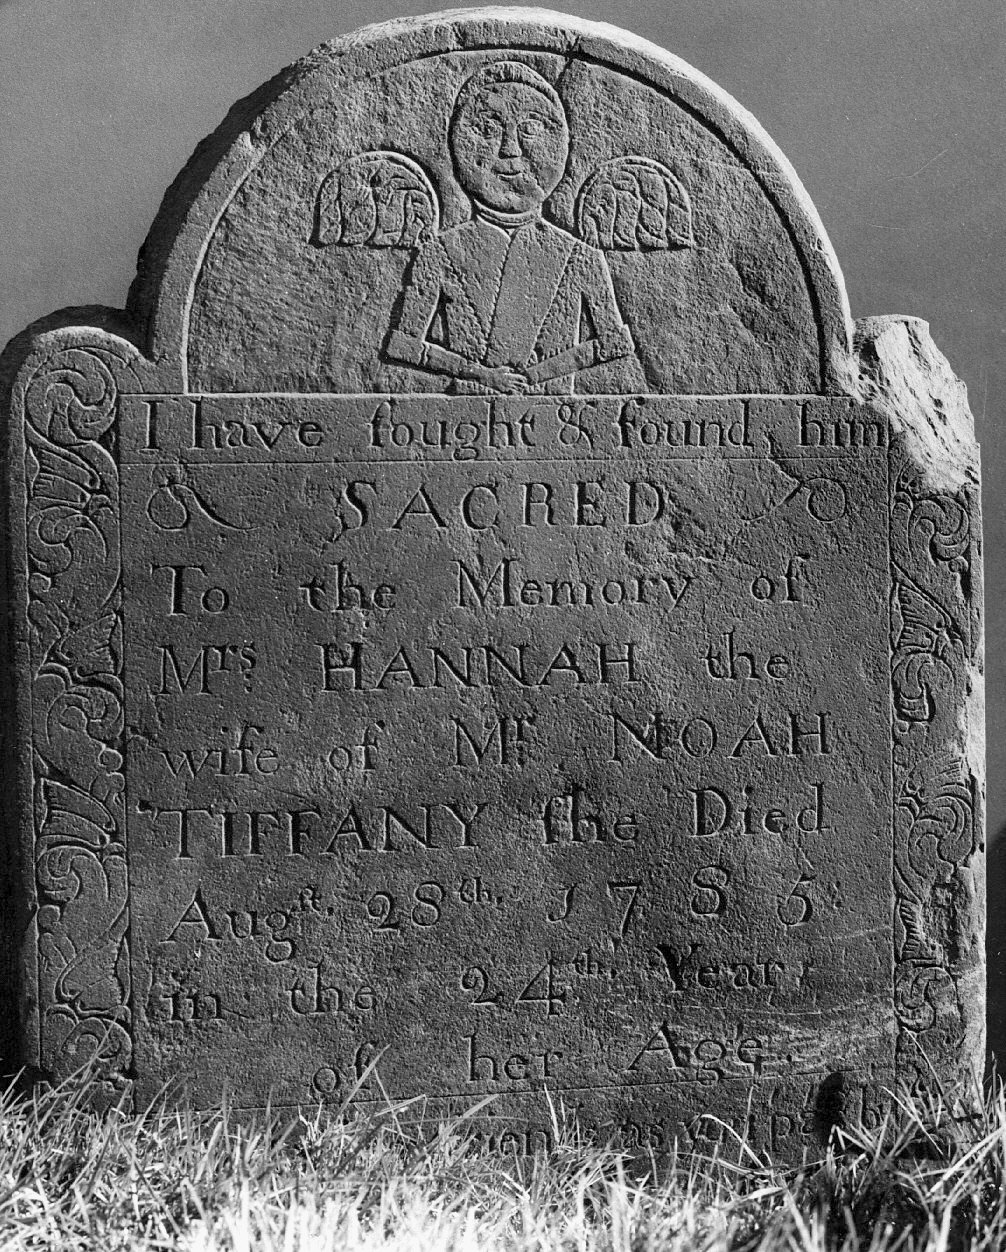 I have ſought & found him
SACRED
To the Memory of
Mrs. HANNAH the
wife of Mr. NOAH
TIFFANY ſhe Died
Augſt. 28th. 1785
in the 24th. Year
of her Age.
as you paſs by